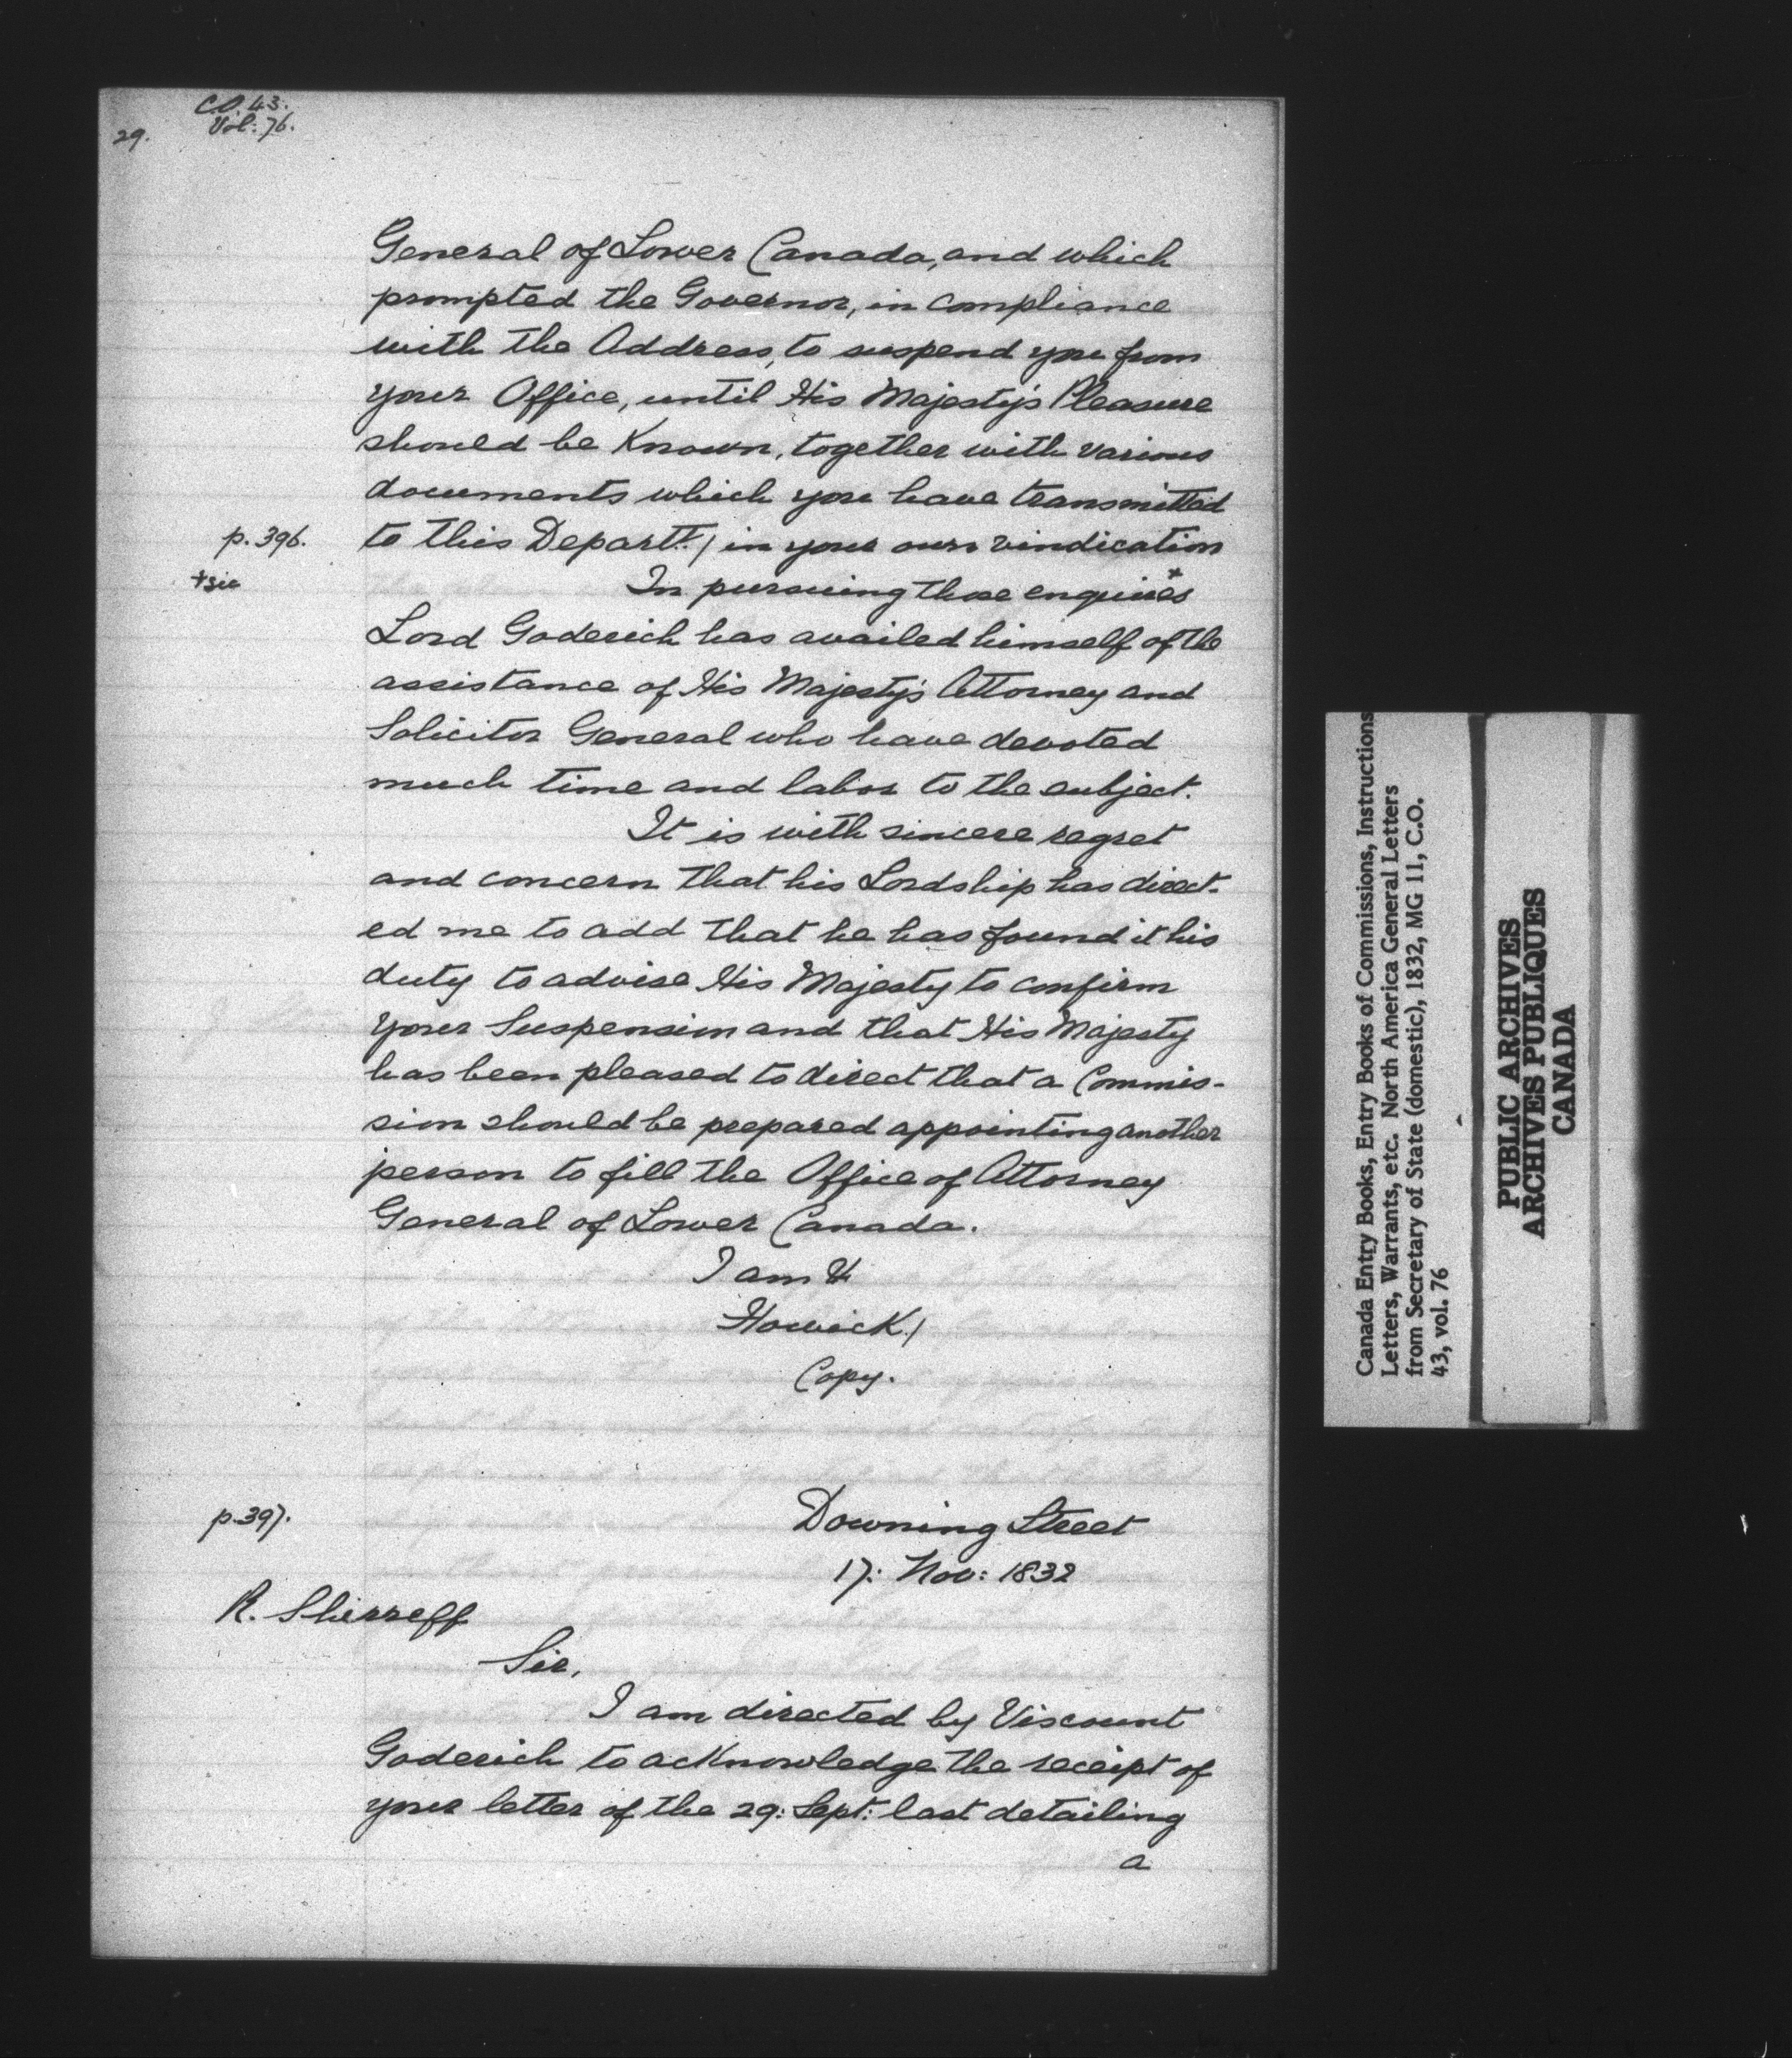 C.O. 43.
Vol: 76.
29.
General of Lower Canada, and which
prompted the Governor, in compliance
with the Address, to suspend you from
your Office, until His Majesty's Pleasure
should be Known, together with various
documents which you have transmitted
p. 396. to this Depart:t / in your own vindication
+sic In pursuing those enquires+
Lord Goderich has availed himself of the
assistance of His Majesty's Attorney and
Solicitor General who have devoted
much time and labor to the subject.
It is with sincere regret
and concern that his Lordship has direct-
ed me to add that he has found it his
duty to advise His Majesty to confirm
your Suspension and that His Majesty
has been pleased to direct that a Commis-
sion should be prepared appointing another
person to fill the Office of Attorney
General of Lower Canada.
I am &
Howick /
Copy.
p. 397. Downing Street
17: Nov: 1832
R. Shirreff
Sir,
I am directed by Viscount
Goderich to acKnowledge the receipt of
your letter of the 29: Sept: last detailing
a
Canada Entry Books, Entry Books of Commissions, Instructions
Letters, Warrants, etc. North America General Letters
from Secretary of State (domestic), 1832, MG 11, C.O.
43, vol. 76
PUBLIC ARCHIVES
ARCHIVES PUBLIQUES
CANADA